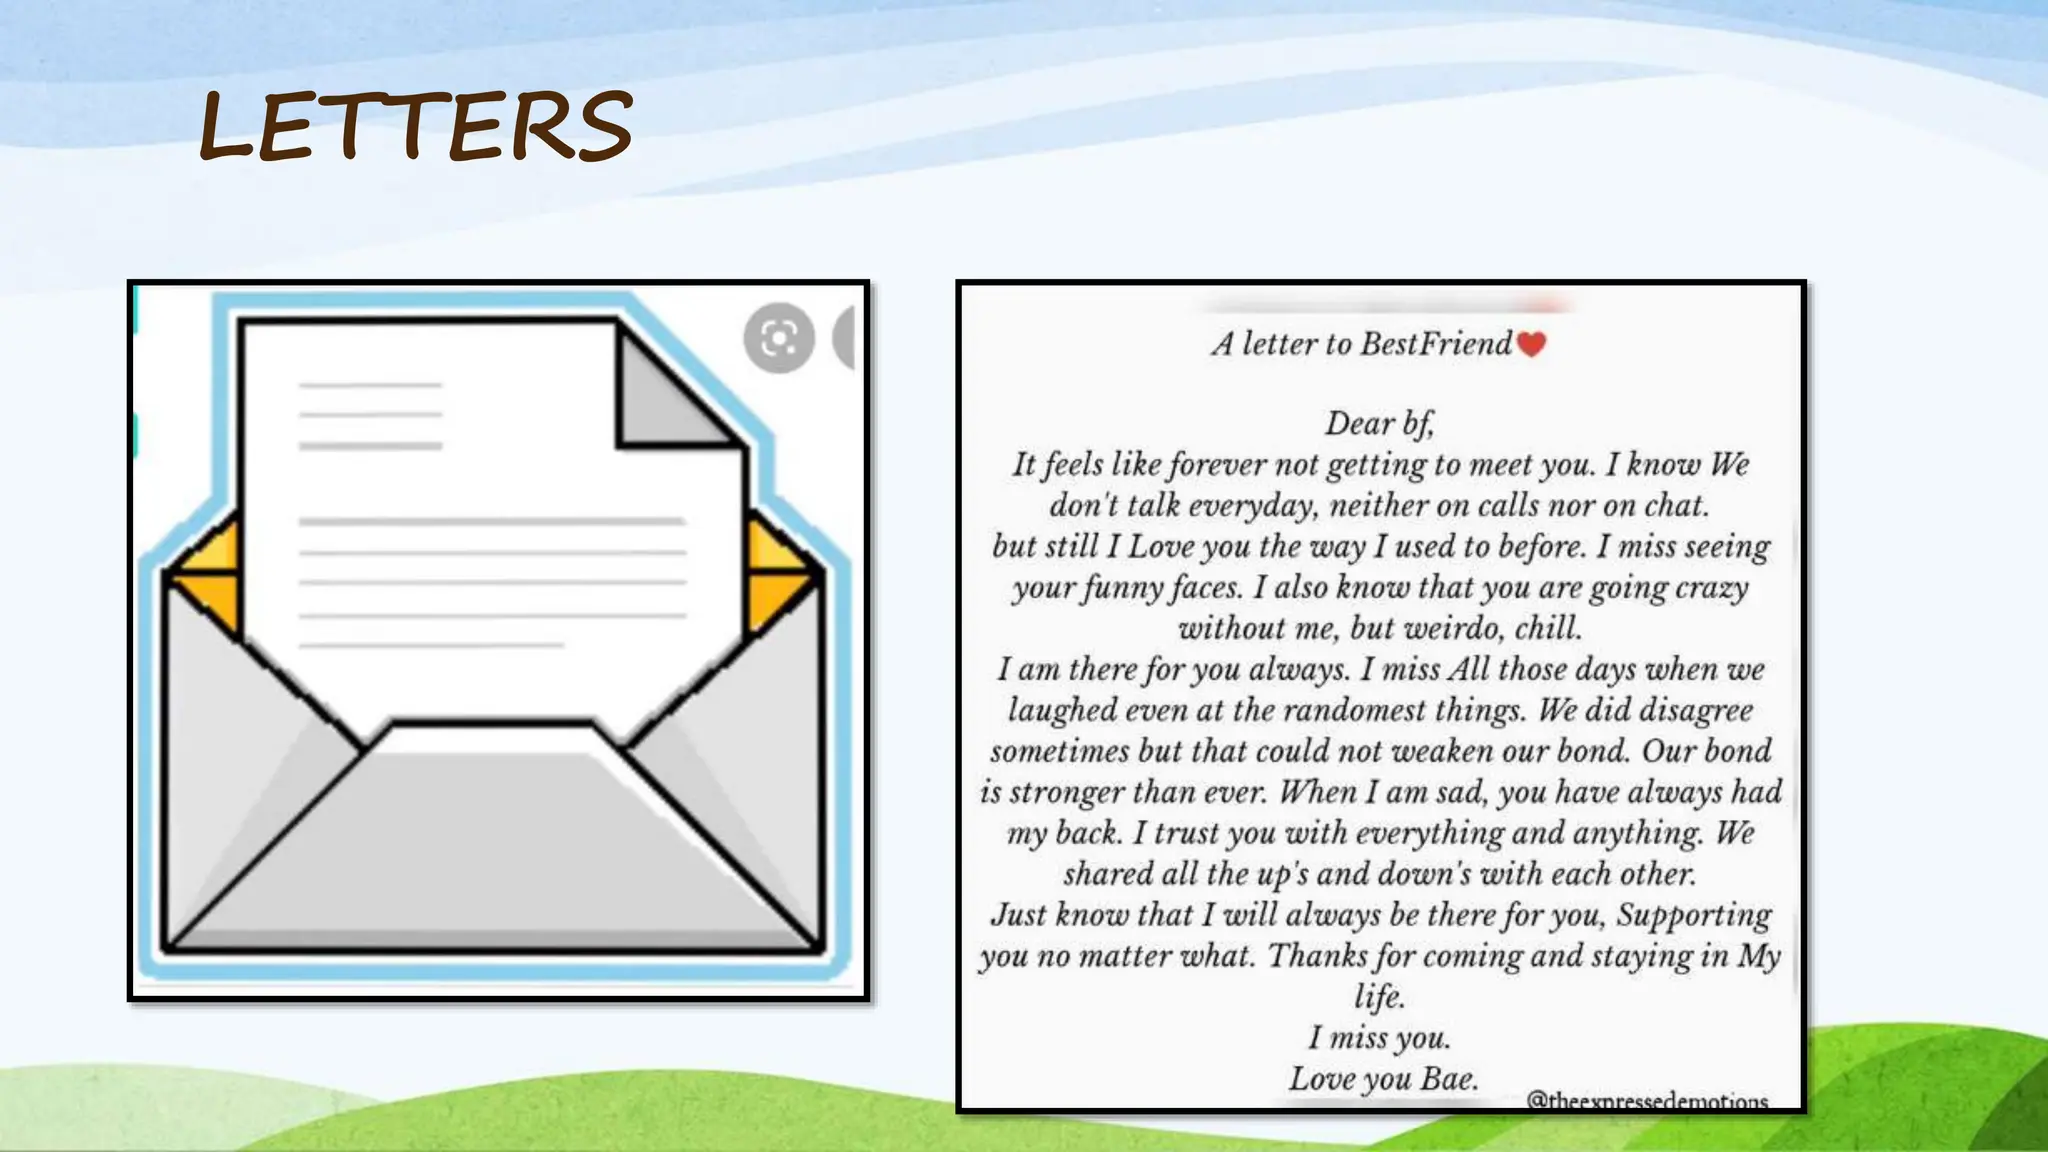 LETTERS
A letter to BestFriend❤
Dear bf,
It feels like forever not getting to meet you. I know We
don't talk everyday, neither on calls nor on chat.
but still I Love you the way I used to before. I miss seeing
your funny faces. I also know that you are going crazy
without me, but weirdo, chill.
I am there for you always. I miss All those days when we
laughed even at the randomest things. We did disagree
sometimes but that could not weaken our bond. Our bond
is stronger than ever. When I am sad, you have always had
my back. I trust you with everything and anything. We
shared all the up's and down's with each other.
Just know that I will always be there for you, Supporting
you no matter what. Thanks for coming and staying in My
life.
I miss you.
Love you Bae.
@theexpressedemotions